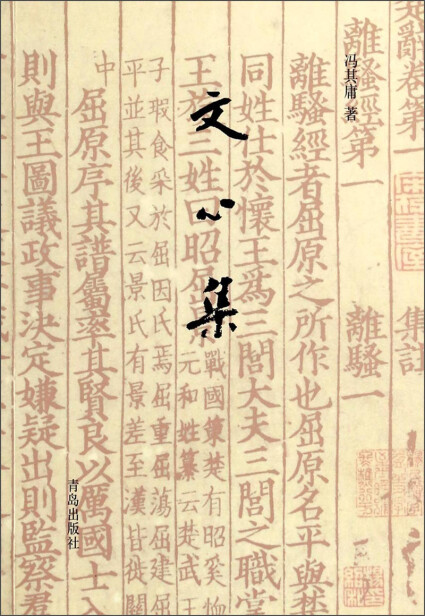 文心集
冯其庸 著
青岛出版社
楚辭卷第一 集註
離騷經第一 離騷一
離騷經者屈原之所作也屈原名平與楚
同姓仕於懷王爲三閭大夫三閭之職掌
王族三姓曰昭屈景
戰國策楚有昭奚恤
元和姓纂云楚武王
子瑕食采於屈因氏焉屈重屈蕩屈建屈
平並其後又云景氏有景差至漢皆徙關
中 屈原序其譜屬率其賢良以厲國士入
則與王圖議政事決定嫌疑出則監察羣